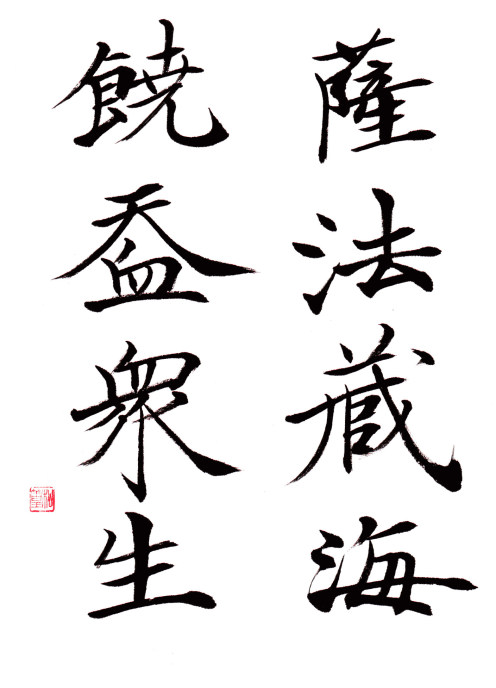 薩法藏海
饒益衆生